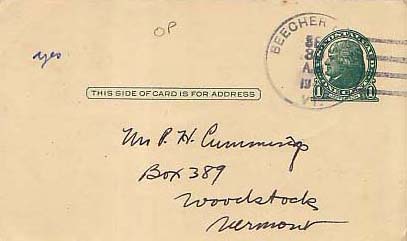 OP
yes
BEECHER
VT.
1 1
THIS SIDE OF CARD IS FOR ADDRESS
Mr P. H. Cummings
Box 389
Woodstock
Vermont